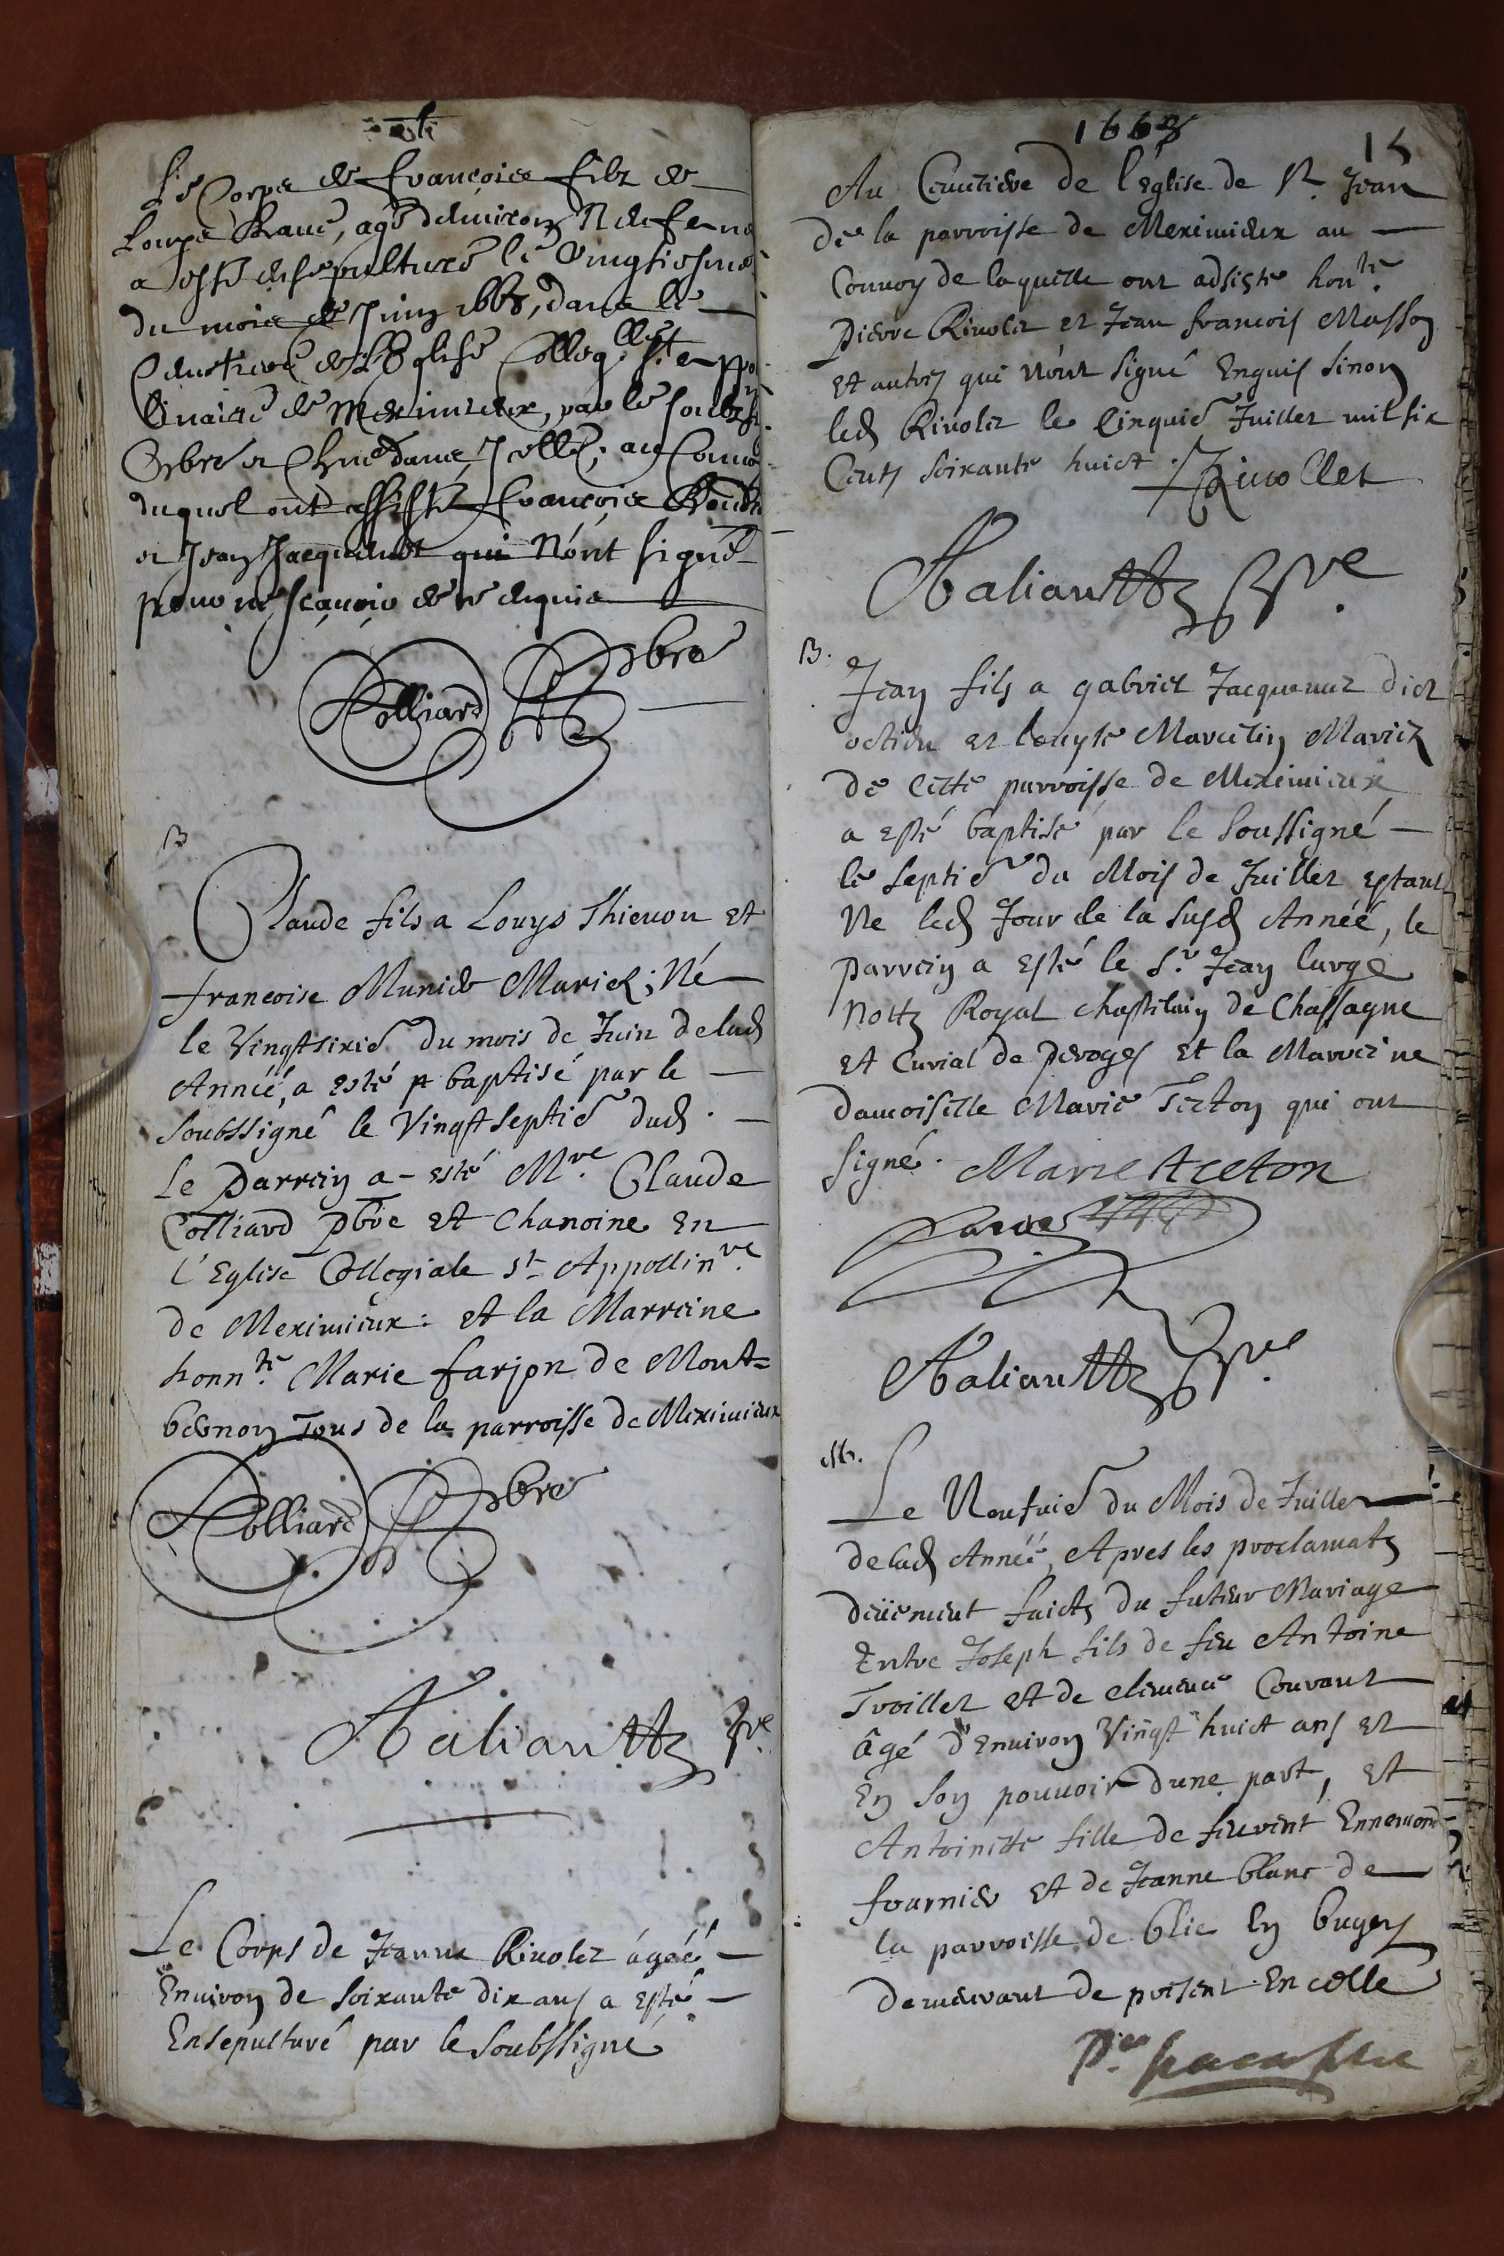 Le Corps de francois filz de
Louys Raue, agé denuiron Neuf ans
a esté ensepulturé le vingtiesme
du mois de Juin 1668, dans le
Cemetiere de l'Eglise Colleg.lle St Appo
linaire de Meximieux, par le soubz.né
pbre et Chne dans Icelle; au Conuoy
duquel ont assisté francois
et Jean Jacquemet qui n'ont signé
pour ne sçauoir de ce enquis
Colliard pbre
B
Claude fils a Louys Thieuon et
francoise Munier Mariez; Né
le Vingtsixie du mois de Juin de lad
Année, a esté baptisé par le
soubssigné le Vingtseptie dud.
Le Parrein a esté Mre. Claude
Colliard pbre et Chanoine En
l'Eglise Collegiale St Appollinre.
de Meximieux: et la Marreine
honnte. Marie farjon de Mont=
bernon Tous de la parroisse de Meximieux
Colliard pbre
Aaliautz
Le Corps de Jeanne Riuolet ágéé
Enuiron de soixante dix ans a esté
Ensepulturé par le Soubssigné
1668
15
Au Cemetiere de l'eglise de St. Jean
de la parroisse de Meximieux au
Conuoy de laquelle ont adsisté honte.
Pierre Riuolet et Jean francois Masson
et autres qui n'ont signé Enquis sinon
led Riuolet le Cinquie Juillet mil six
Cents soixante huict. Riuollet
Aaliautz
B.
Jean fils a gabriel Jacquemet dict
octieu et Louyse Marcelin Mariez
de cette parroisse de Meximieux
a esté baptisé par le Soussigné
le septie du Mois de Juillet estant
Ne led Jour de la susd Année, le
parrein a esté le Sr. Jean large
Nottz Royal chastelain de Chassagne
et Curial de Peroges et la Marreine
damoiselle Marie Teton qui ont
signé. Marie teton
Large
Aaliautz
M.
Le Neufuie du Mois de Juillet
de lad Année, Apres les proclamatz
deüement faictz du futeur Mariage
Entre Joseph fils de feu Antoine
Troillet et de clemence Couvant
âgé d'Enuiron Vingt huict ans et
En son pouuoir d'une part, et
Antoinette fille de feu Ennemond
fournier et de Jeanne blanc de
la parroisse de blie En bugey
demeurant de present En celle